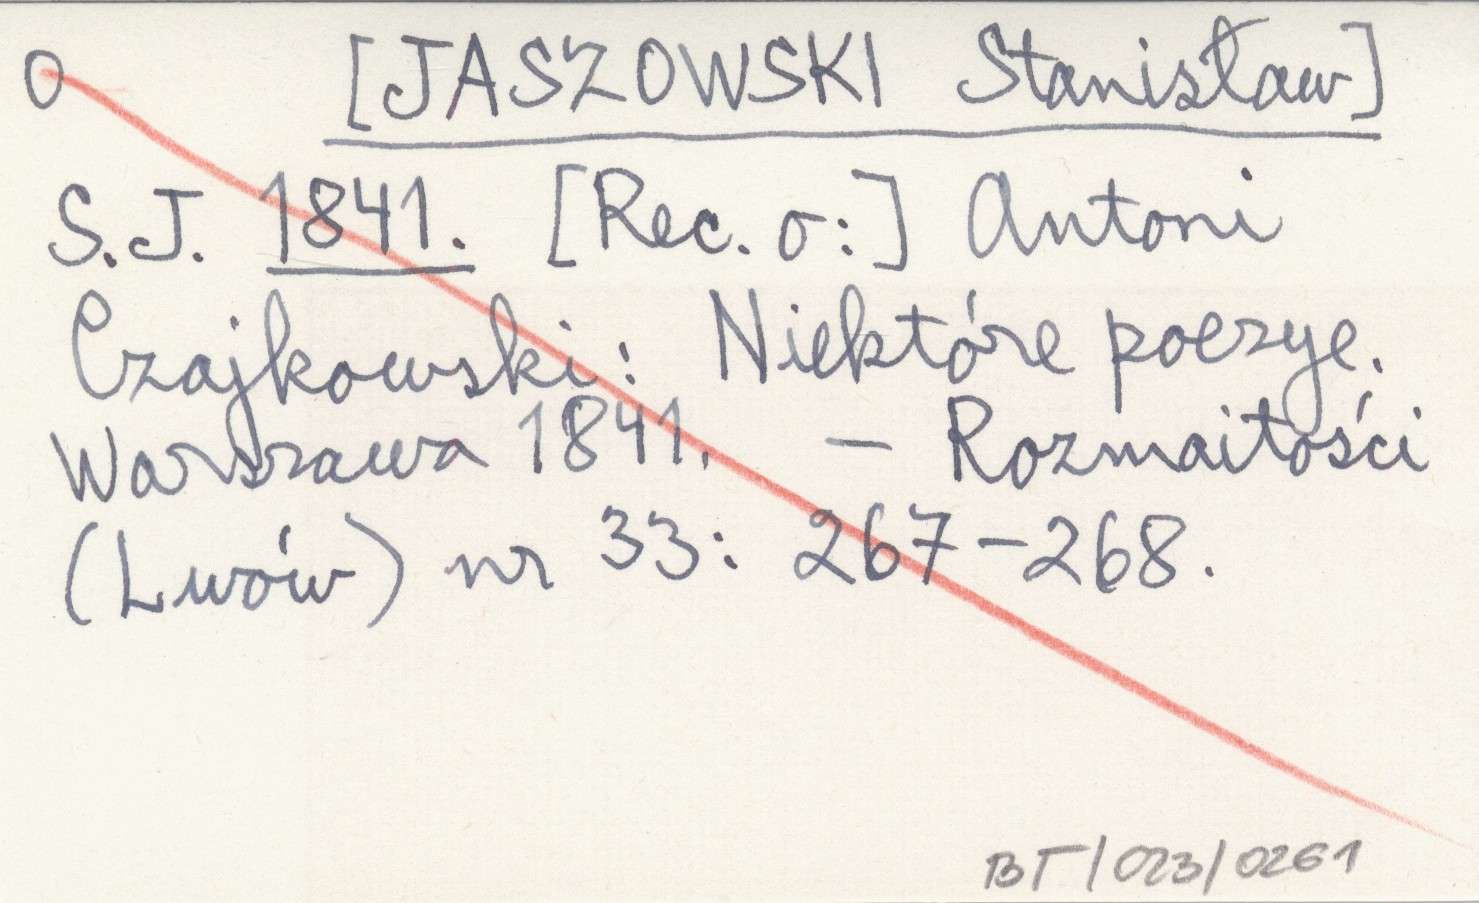 O [JASZOWSKI Stanisław]
S.J. 1841. [Rec. o:] Antoni
Czajkowski: Niektóre poezye.
Warszawa 1841. — Rozmaitości
(Lwów) nr 33: 267-268.
BT/023/0261